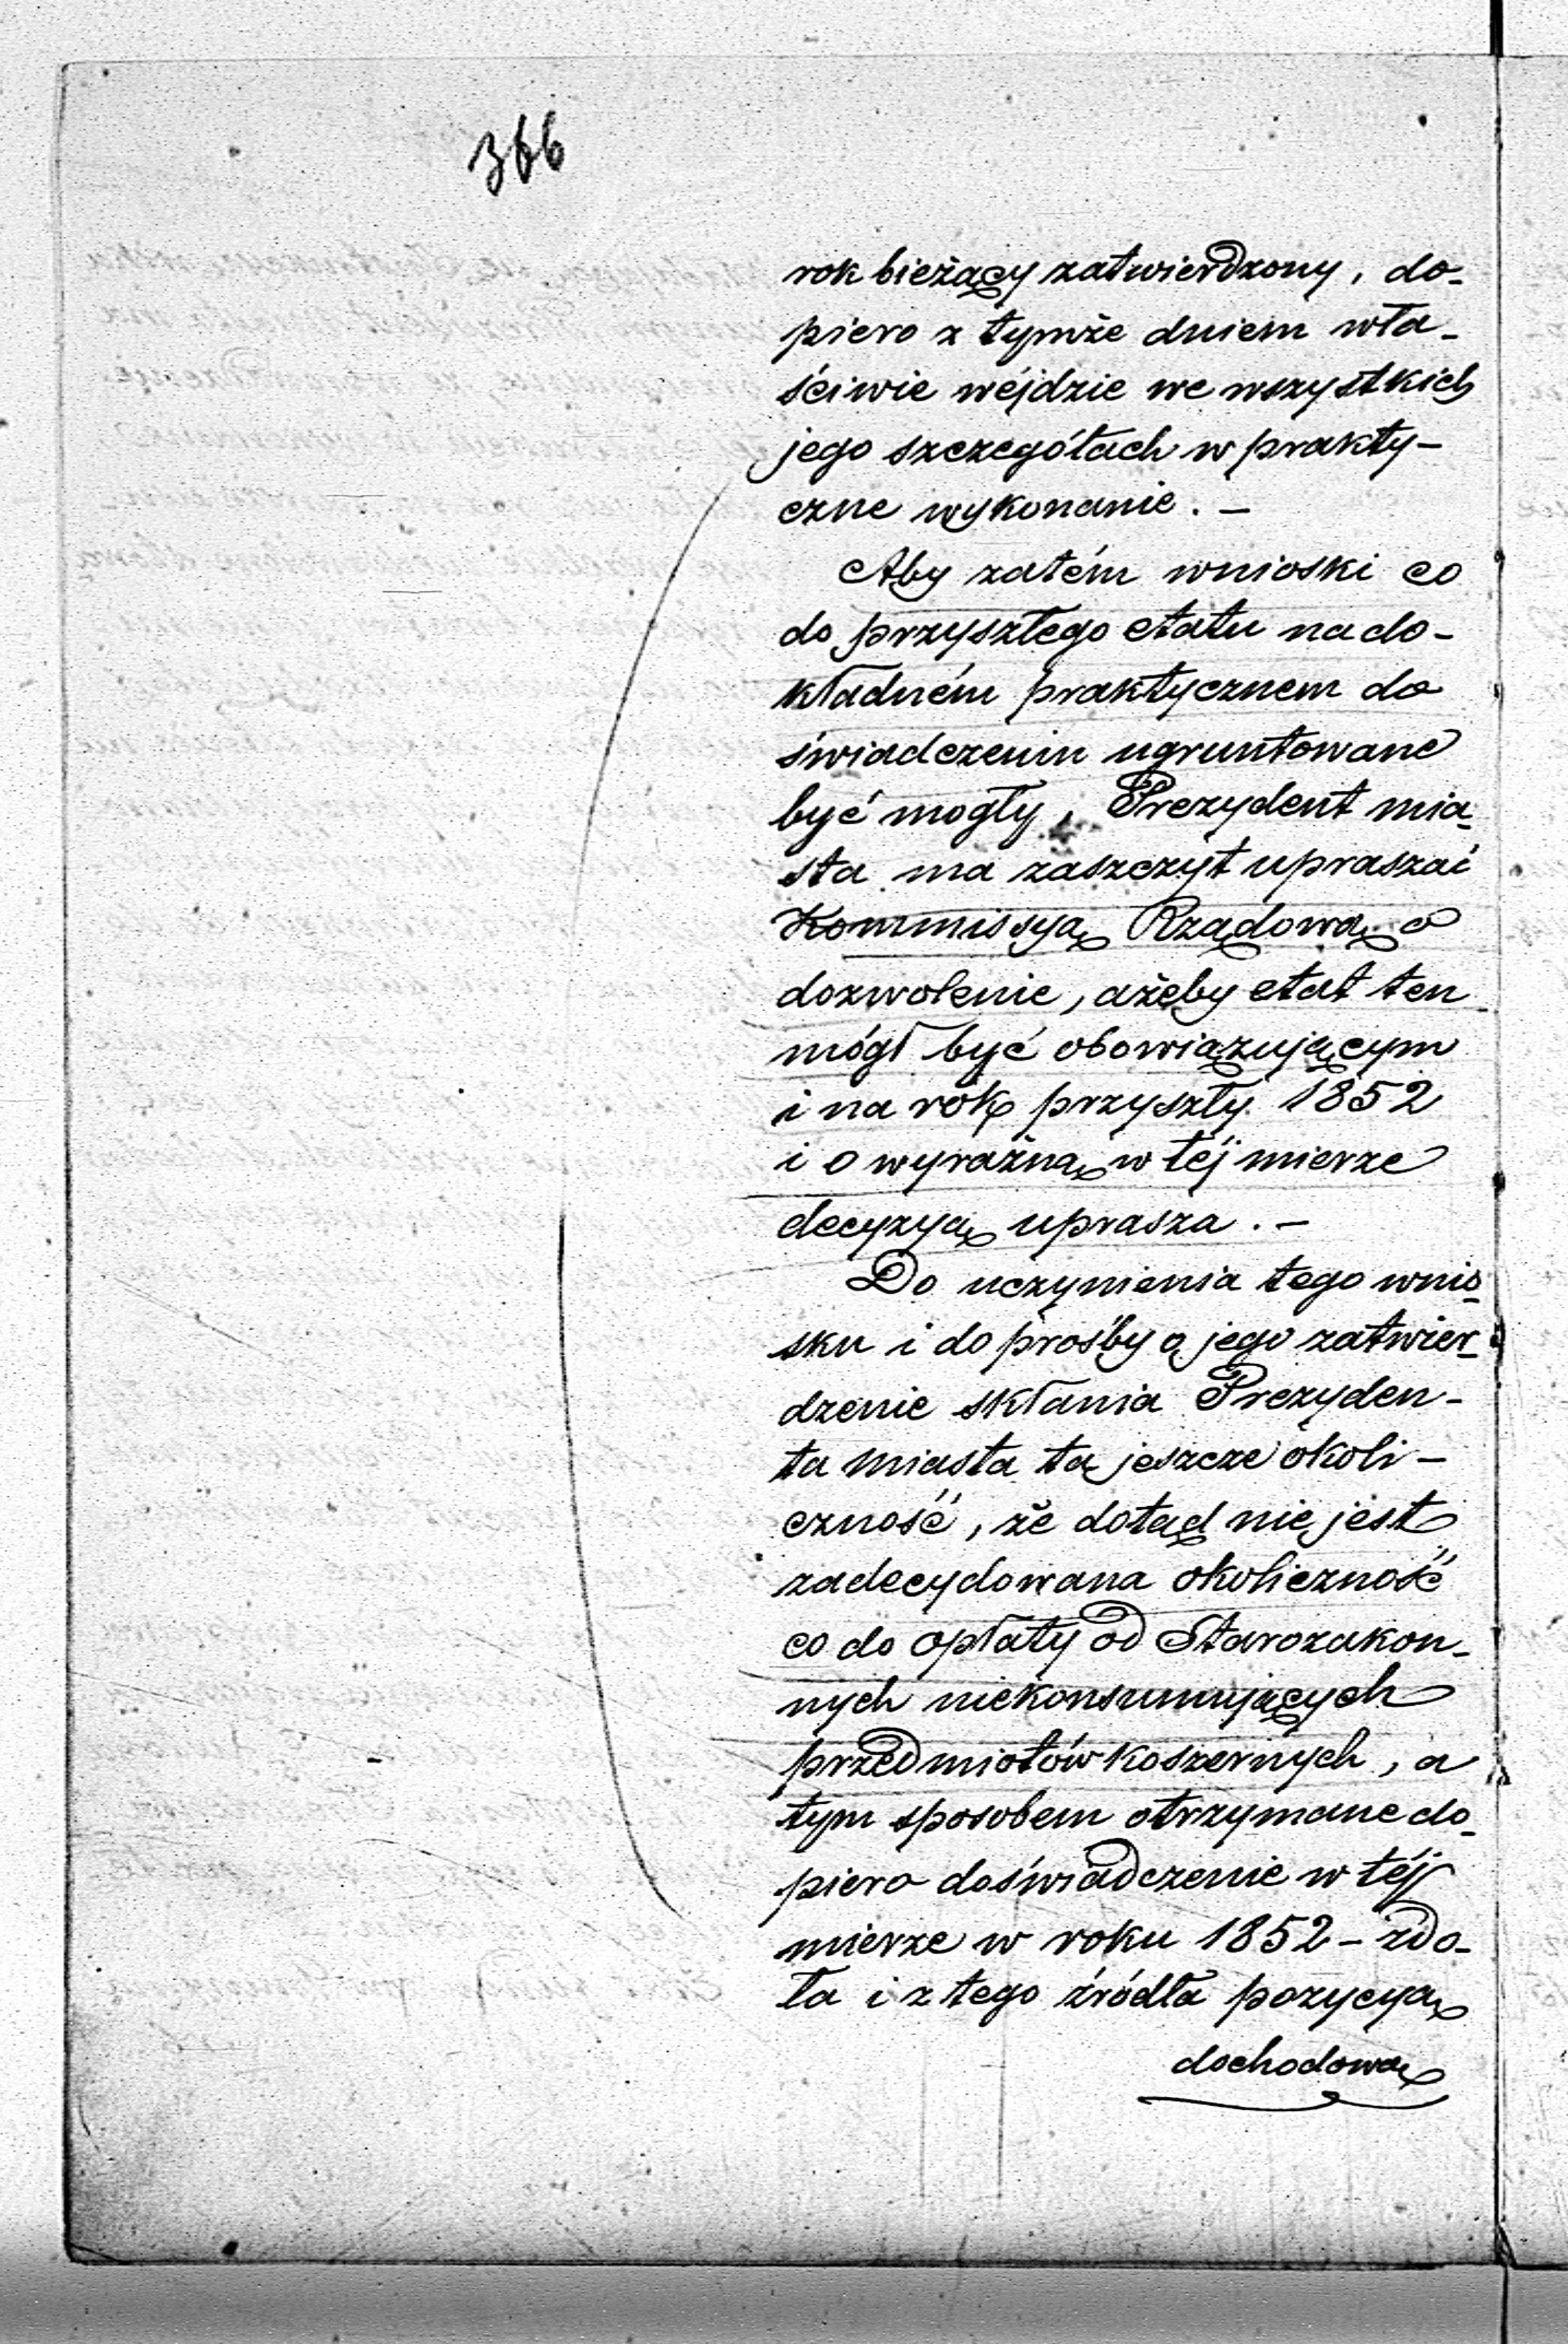 366
rok bieżący zatwierdzony, do-
piero z tymże dniem wła-
ściwie wéjdzie we wszystkich
jego szczegółach w prakty-
czne wykonanie. —
Aby zatém wnioski co
do przyszłego etatu na do-
kładném praktycznem do
świadczeniu ugruntowane
być mogły, Prezydent mia-
sta ma zaszczyt upraszać
Kommissyą Rządową o
dozwolenie, ażeby etat ten
mógł być obowiązującym
i na rok przyszły 1852
i o wyraźną w téj mierze
decyzyą uprasza. —
Do uczynienia tego wnio-
sku i do prośby o jego zatwier-
dzenie skłania Prezyden-
ta miasta ta jeszcze okoli-
czność, że dotąd nie jest
zadecydowana okoliczność
co do opłaty od Starozakon-
nych niekonsumujących
przedmiotów koszernych, a
tym sposobem otrzymane do-
piero doświadczenie w téj
mierze w roku 1852 — zdo-
ła i z tego źródła pozycyą
dochodową